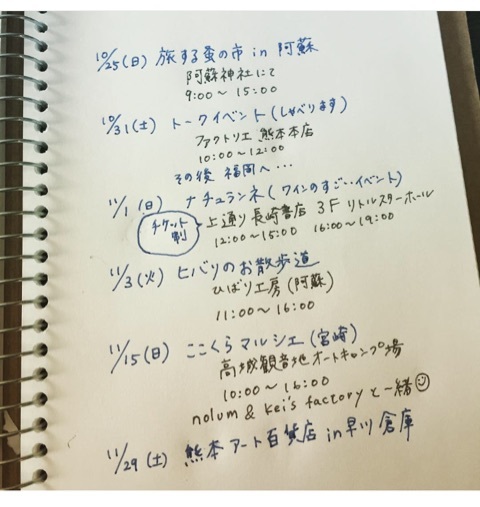 10/25(日) 旅する蚤の市 in 阿蘇
阿蘇神社にて
9:00〜15:00
10/31(土) トークイベント(しゃべります)
ファクトリエ 熊本本店
10:00〜12:00
その後 福岡へ…
11/1(日) ナチュランネ(ワインのすごいイベント)
チケット制
上通り長崎書店 3F リトルスターホール
12:00〜15:00 16:00〜19:00
11/3(火) ヒバリのお散歩道
ひばり工房(阿蘇)
11:00〜16:00
11/15(日) ここくらマルシェ(宮崎)
高城観音池オートキャンプ場
10:00〜16:00
nolum & kei's factory と一緒☺
11/29(土) 熊本アート百貨店 in 早川倉庫